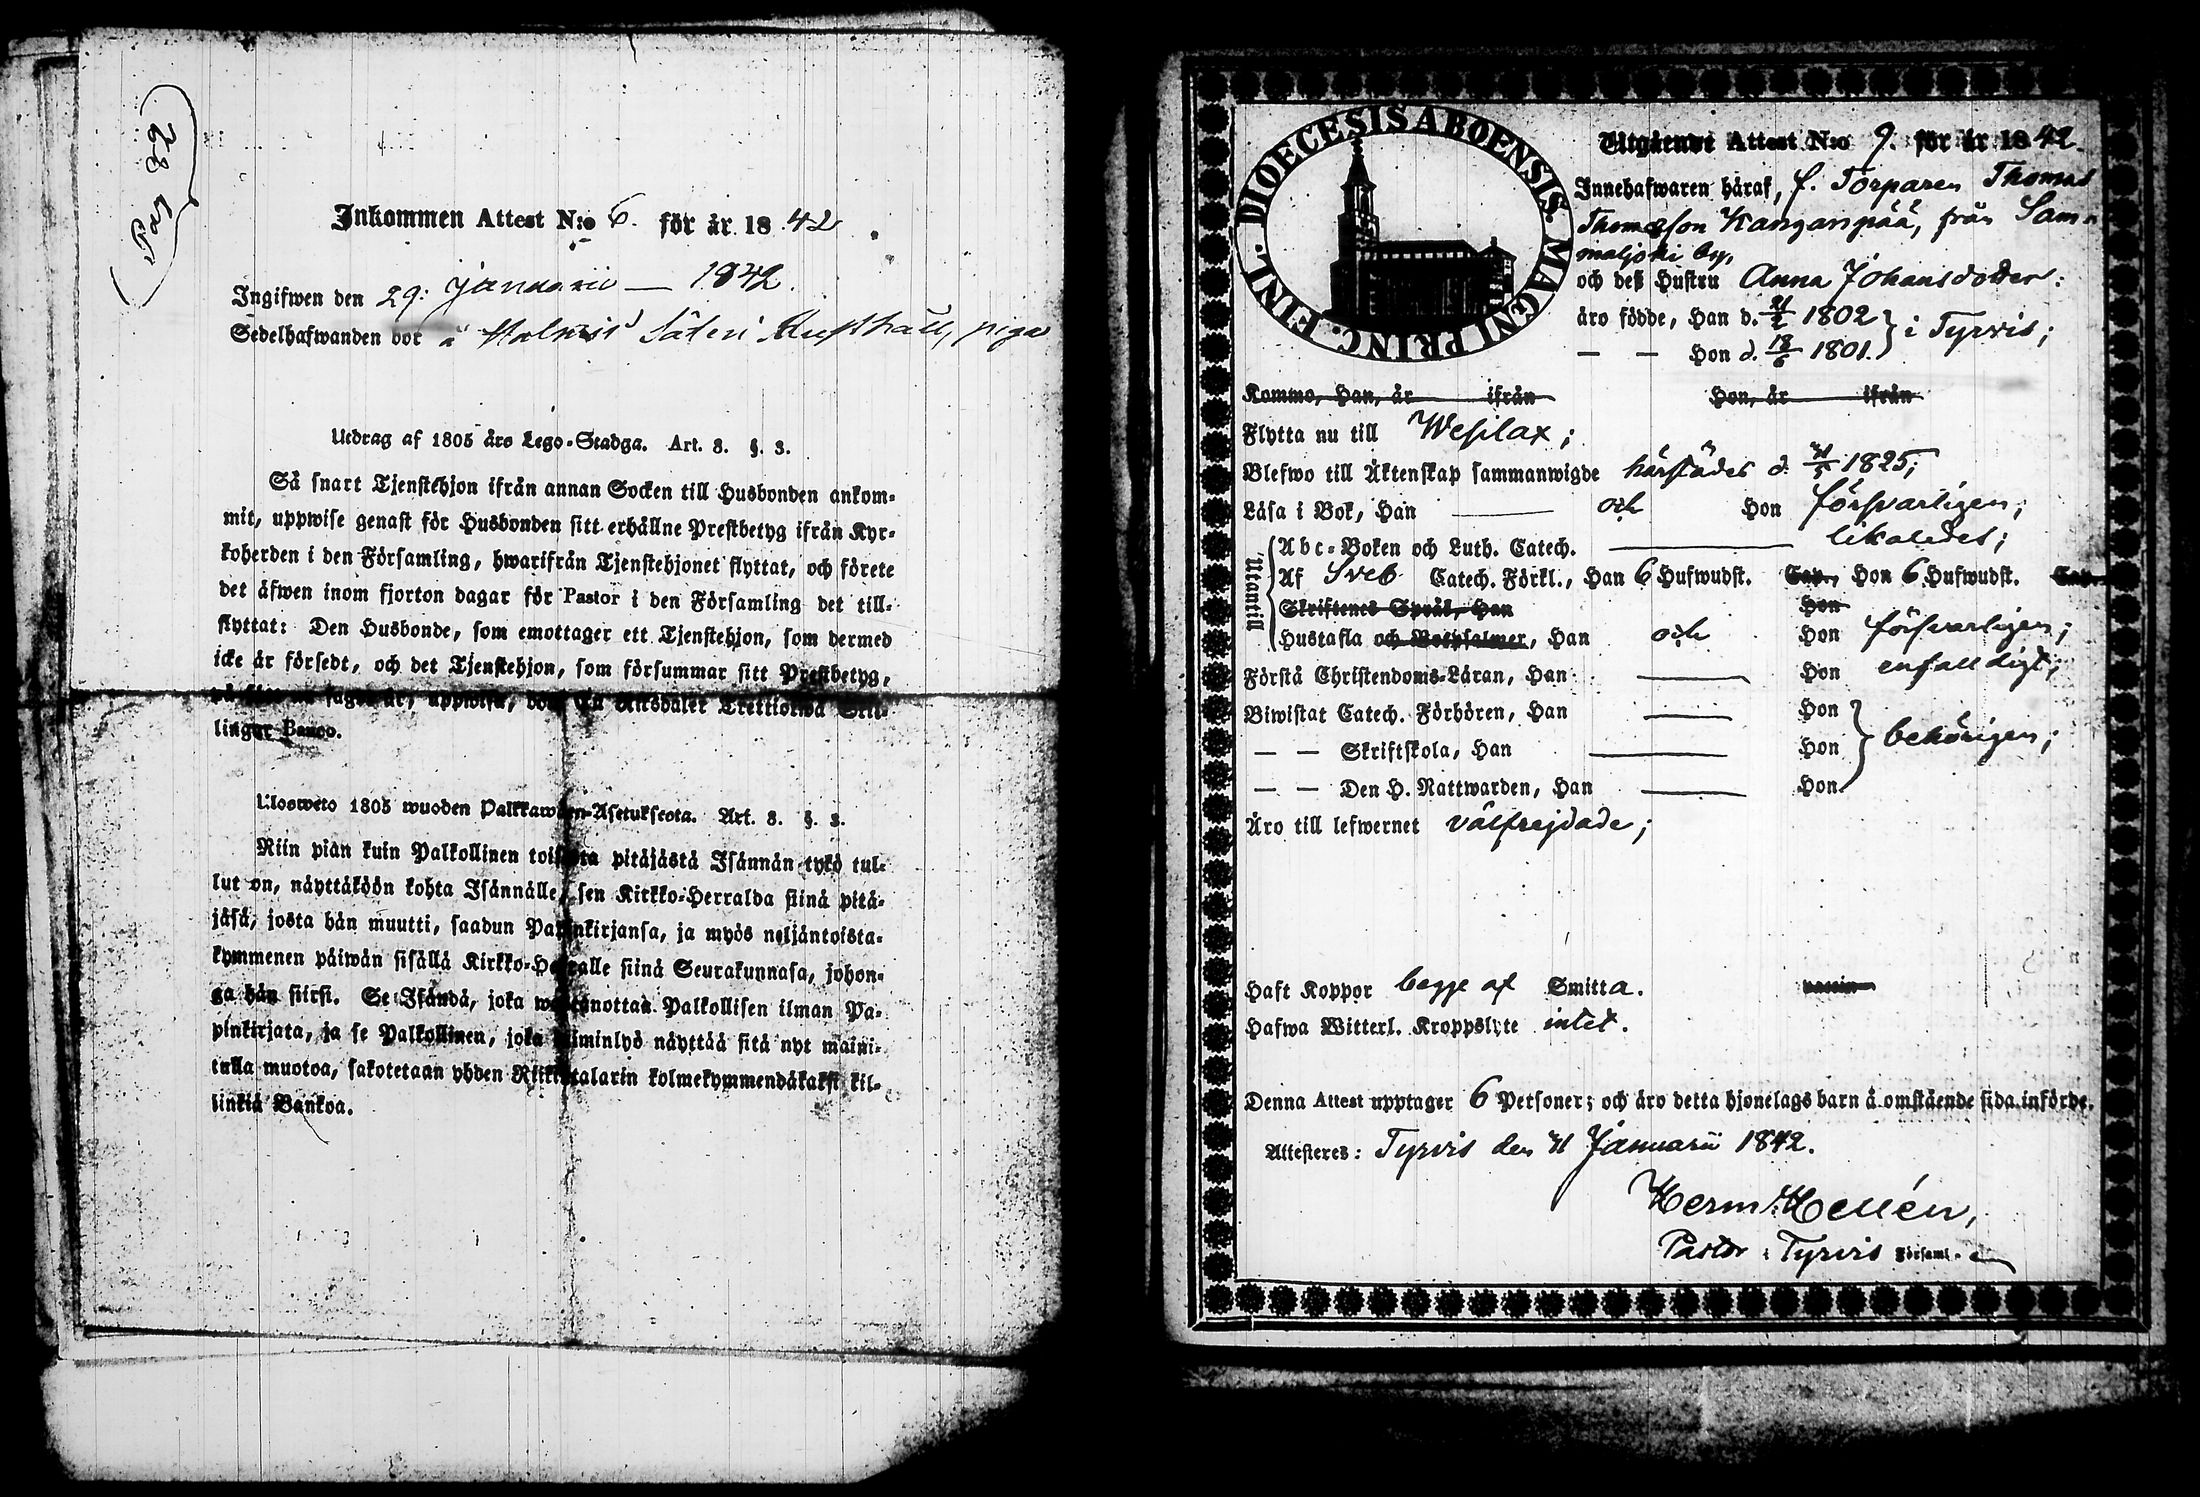 Inkommen Attest N:o 6. för år 1842
Ingifwen den 29: Januarii — 1842.
Sedelhafwanden bor å Säteri piga
Utdrag af 1805 års Lego-Stadga. Art. 8. §. 3.
Så snart Tjenstehjon ifrån annan Socken till Husbonden ankom-
mit, uppwise genast för Husbonden sitt erhållne Prestbetyg ifrån Kyr-
koherden i den Församling, hwarifrån Tjenstehjonet flyttat, och förete
det äfwen inom fjorton dagar för Pastor i den Församling det till-
flyttat: Den Husbonde, som emottager ett Tjenstehjon, som dermed
icke är försedt, och det Tjenstehjon, som försummar sitt Prestbetyg,
uppwisa, Riksdaler Trettiotwå Skil-
lingar Banco.
Ulosweto 1805 wuoden Palkkawäen-Asetuksesta. Art. 8. §. 3.
Niin piän kuin Palkollinen toisesta pitäjästä Isännän tykö tul-
lut on, näyttäköön kohta Isännälle, sen Kirkko-Herralda siinä pitä-
jäsä, josta hän muutti, saadun Papinkirjansa, ja myös neljäntoista-
kymmenen päiwän sisällä Kirkko-Herralle siinä Seurakunnasa, johon-
ga hän siirsi. Se Isändä, joka wastanottaa Palkollisen ilman Pa-
pinkirjata, ja se Palkollinen, joka laiminlyö näyttää sitä nyt maini-
tulla muotoa, sakotetaan yhden Riikintalarin kolmekymmendäkaksi kil-
linkiä Bankoa.
DIOECESIS ABOENSIS MAGNI PRINC. FINL.
Utgående Attest N:o 9. för år 1842.
Innehafwaren häraf, f. Torparen Thomas
Thomasson Kanganpää, från Sam-
maljoki by,
och deß Hustru Anna Johansdotter:
äro födde, Han d. 21/2 1802 } i Tyrvis;
— — Hon d. 18/6 1801.
Kommo, Han, år ifrån Hon, år ifrån
Flytta nu till Wesilax;
Blefwo till Äktenskap sammanwigde härstädes d. 1825;
Läsa i Bok, Han — och Hon försvarligen;
Utantill { Abc-Boken och Luth. Catech. — likaledes;
Af Sveb Catech. Förkl., Han 6 Hufwudst. Cap., Hon 6 Hufwudst. Cap.
Skriftenes Språk, Han Hon
Hustafla och Botpsalmer, Han och Hon försvarligen;
Förstå Christendoms-Läran, Han — Hon enfalldigt;
Biwistat Catech. Förhören, Han — Hon
— — Skriftskola, Han — Hon } behörigen;
— — Den H. Nattwarden, Han — Hon
Äro till lefwernet välfrejdade;
Haft Koppor begge af Smitta. vaccin
Hafwa Witterl. Kroppslyte intet.
Denna Attest upptager 6 Personer; och äro detta hjonelags barn å omstående sida införde.
Attesteres: Tyrvis den 21 Januarii 1842.
Herm. Hellén,
Pastor i Tyrvis Församl.